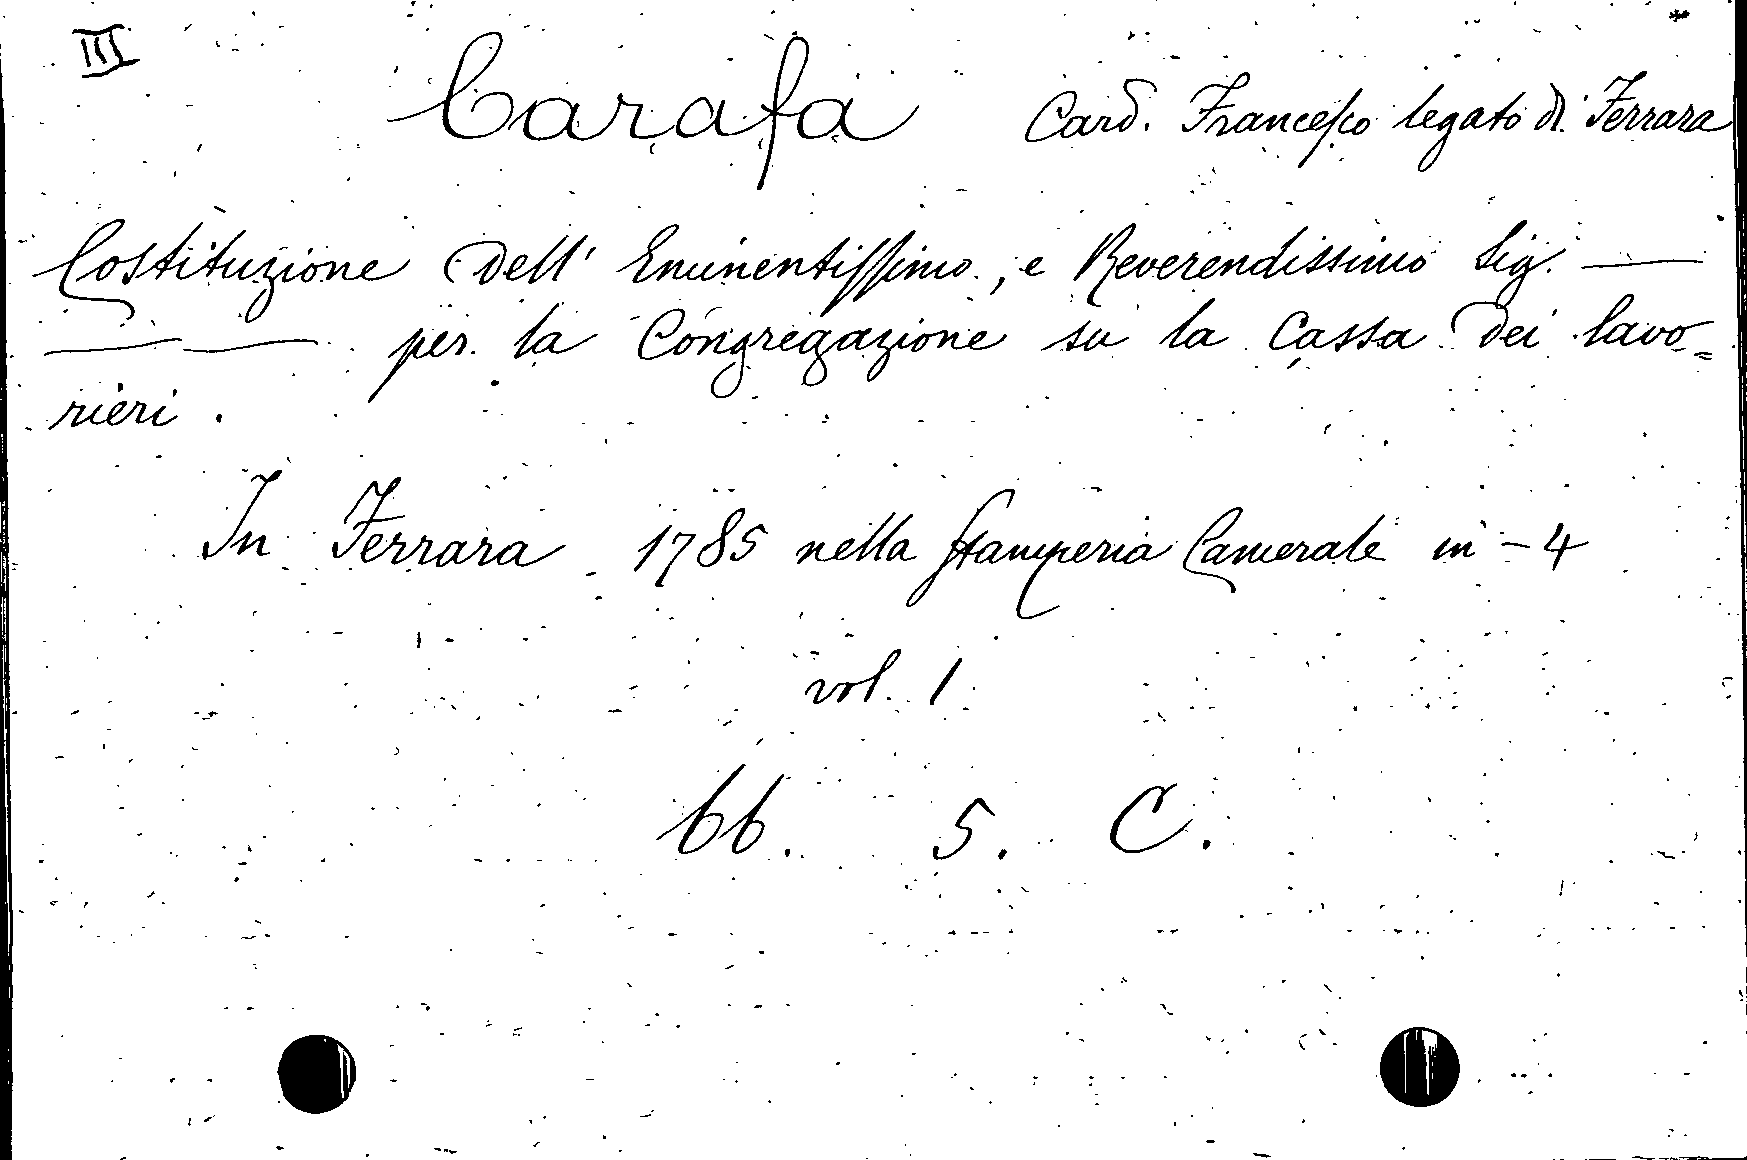 III
Carafa Card. Francesco legato di Ferrara
Costituzione dell' Eminentissimo, e Reverendissimo Sig. ——
—— —— per la Congregazione su la Cassa dei lavo=
rieri.
In Ferrara 1785 nella Stamperia Camerale in-4
vol. 1
bb. 5. C.